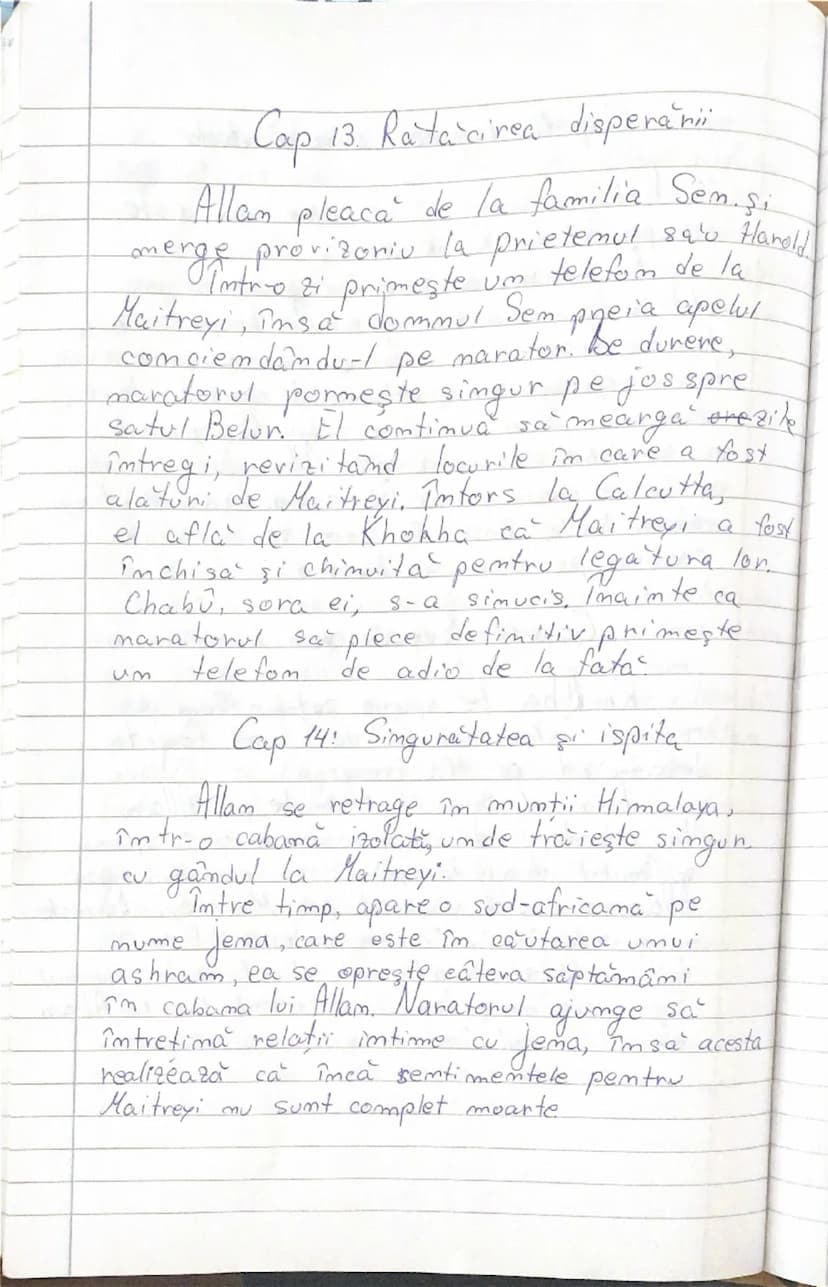 Cap 13. Rătăcirea disperării
Allam pleacă de la familia Sen. și
merge provizoriu la prietenul său Harold.
Într-o zi primește un telefon de la
Maitreyi, însă domnul Sen preia apelul
concediindu-l pe narator. De durere,
naratorul pornește singur pe jos spre
satul Belur. El continuă să meargă zile
întregi, revizitând locurile în care a fost
alături de Maitreyi. Întors la Calcutta,
el află de la Khokha că Maitreyi a fost
închisă și chinuită pentru legătura lor.
Chabû, sora ei, s-a sinucis. Înainte ca
naratorul să plece definitiv primește
un telefon de adio de la fată.
Cap 14: Singurătatea și ispita
Allam se retrage în munții Himalaya,
într-o cabană izolată, unde trăiește singur
cu gândul la Maitreyi.
Între timp, apare o sud-africană pe
nume Jenia, care este în căutarea unui
ashram, ea se oprește câteva săptămâni
în cabana lui Allam. Naratorul ajunge să
întrețină relații intime cu Jenia, însă acesta
realizează că încă sentimentele pentru
Maitreyi nu sunt complet moarte